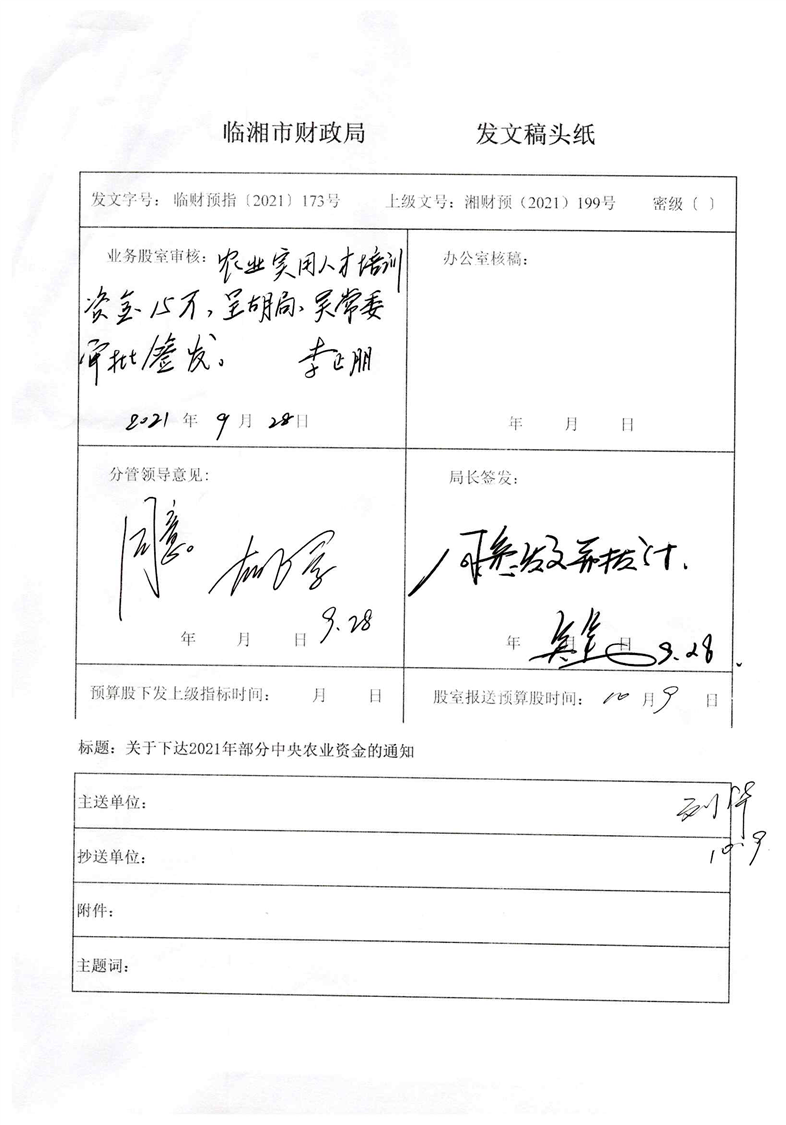 临湘市财政局 发文稿头纸
发文字号：临财预指〔2021〕173号 上级文号：湘财预（2021）199号 密级〔 〕
业务股室审核：农业实用人才培训
资金15万，呈胡局、吴常委
审批签发。 李正朋
2021年9月28日
办公室核稿：
年 月 日
分管领导意见：
同意。
年 月 日 9.28
局长签发：
同意发文并拨付.
年 月 日 9.28
预算股下发上级指标时间： 月 日
股室报送预算股时间：10月9日
标题：关于下达2021年部分中央农业资金的通知
主送单位：
抄送单位：
附件：
主题词：
刘华
10.9